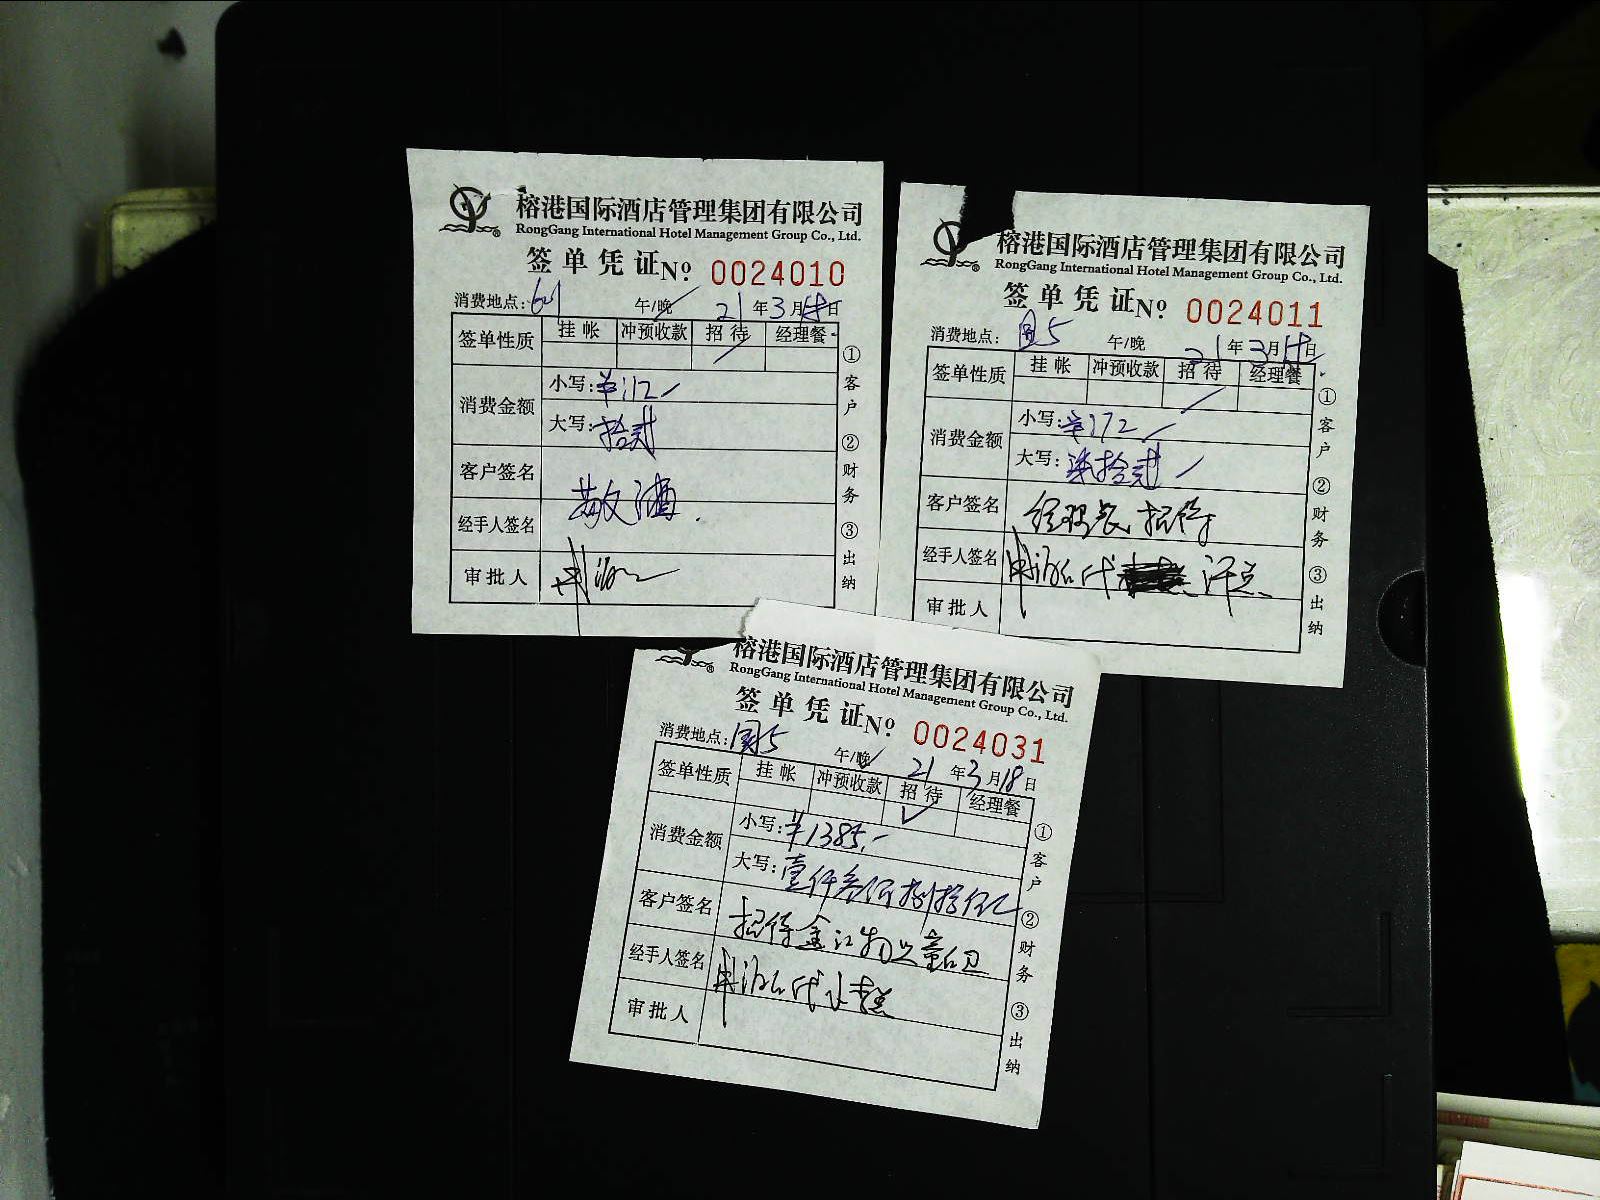 榕港国际酒店管理集团有限公司
RongGang International Hotel Management Group Co., Ltd.
签单凭证 Nº 0024010
消费地点: 601 午/晚 21年3月18日
签单性质 挂帐 冲预收款 招待 经理餐
消费金额 小写: ¥112
大写: 拾贰
客户签名
敬酒
经手人签名
审批人
①客户 ②财务 ③出纳
榕港国际酒店管理集团有限公司
RongGang International Hotel Management Group Co., Ltd.
签单凭证 Nº 0024011
消费地点: 圆5 午/晚 21年3月18日
签单性质 挂帐 冲预收款 招待 经理餐
消费金额 小写: ¥172
大写: 柒拾贰
客户签名 招待
经手人签名 代
审批人
①客户 ②财务 ③出纳
榕港国际酒店管理集团有限公司
RongGang International Hotel Management Group Co., Ltd.
签单凭证 Nº 0024031
消费地点: 圆5 午/晚 21年3月18日
签单性质 挂帐 冲预收款 招待 经理餐
消费金额 小写: ¥1385.-
大写: 壹仟叁佰捌拾伍元
客户签名 招待金江物业董
经手人签名 代
审批人
①客户 ②财务 ③出纳